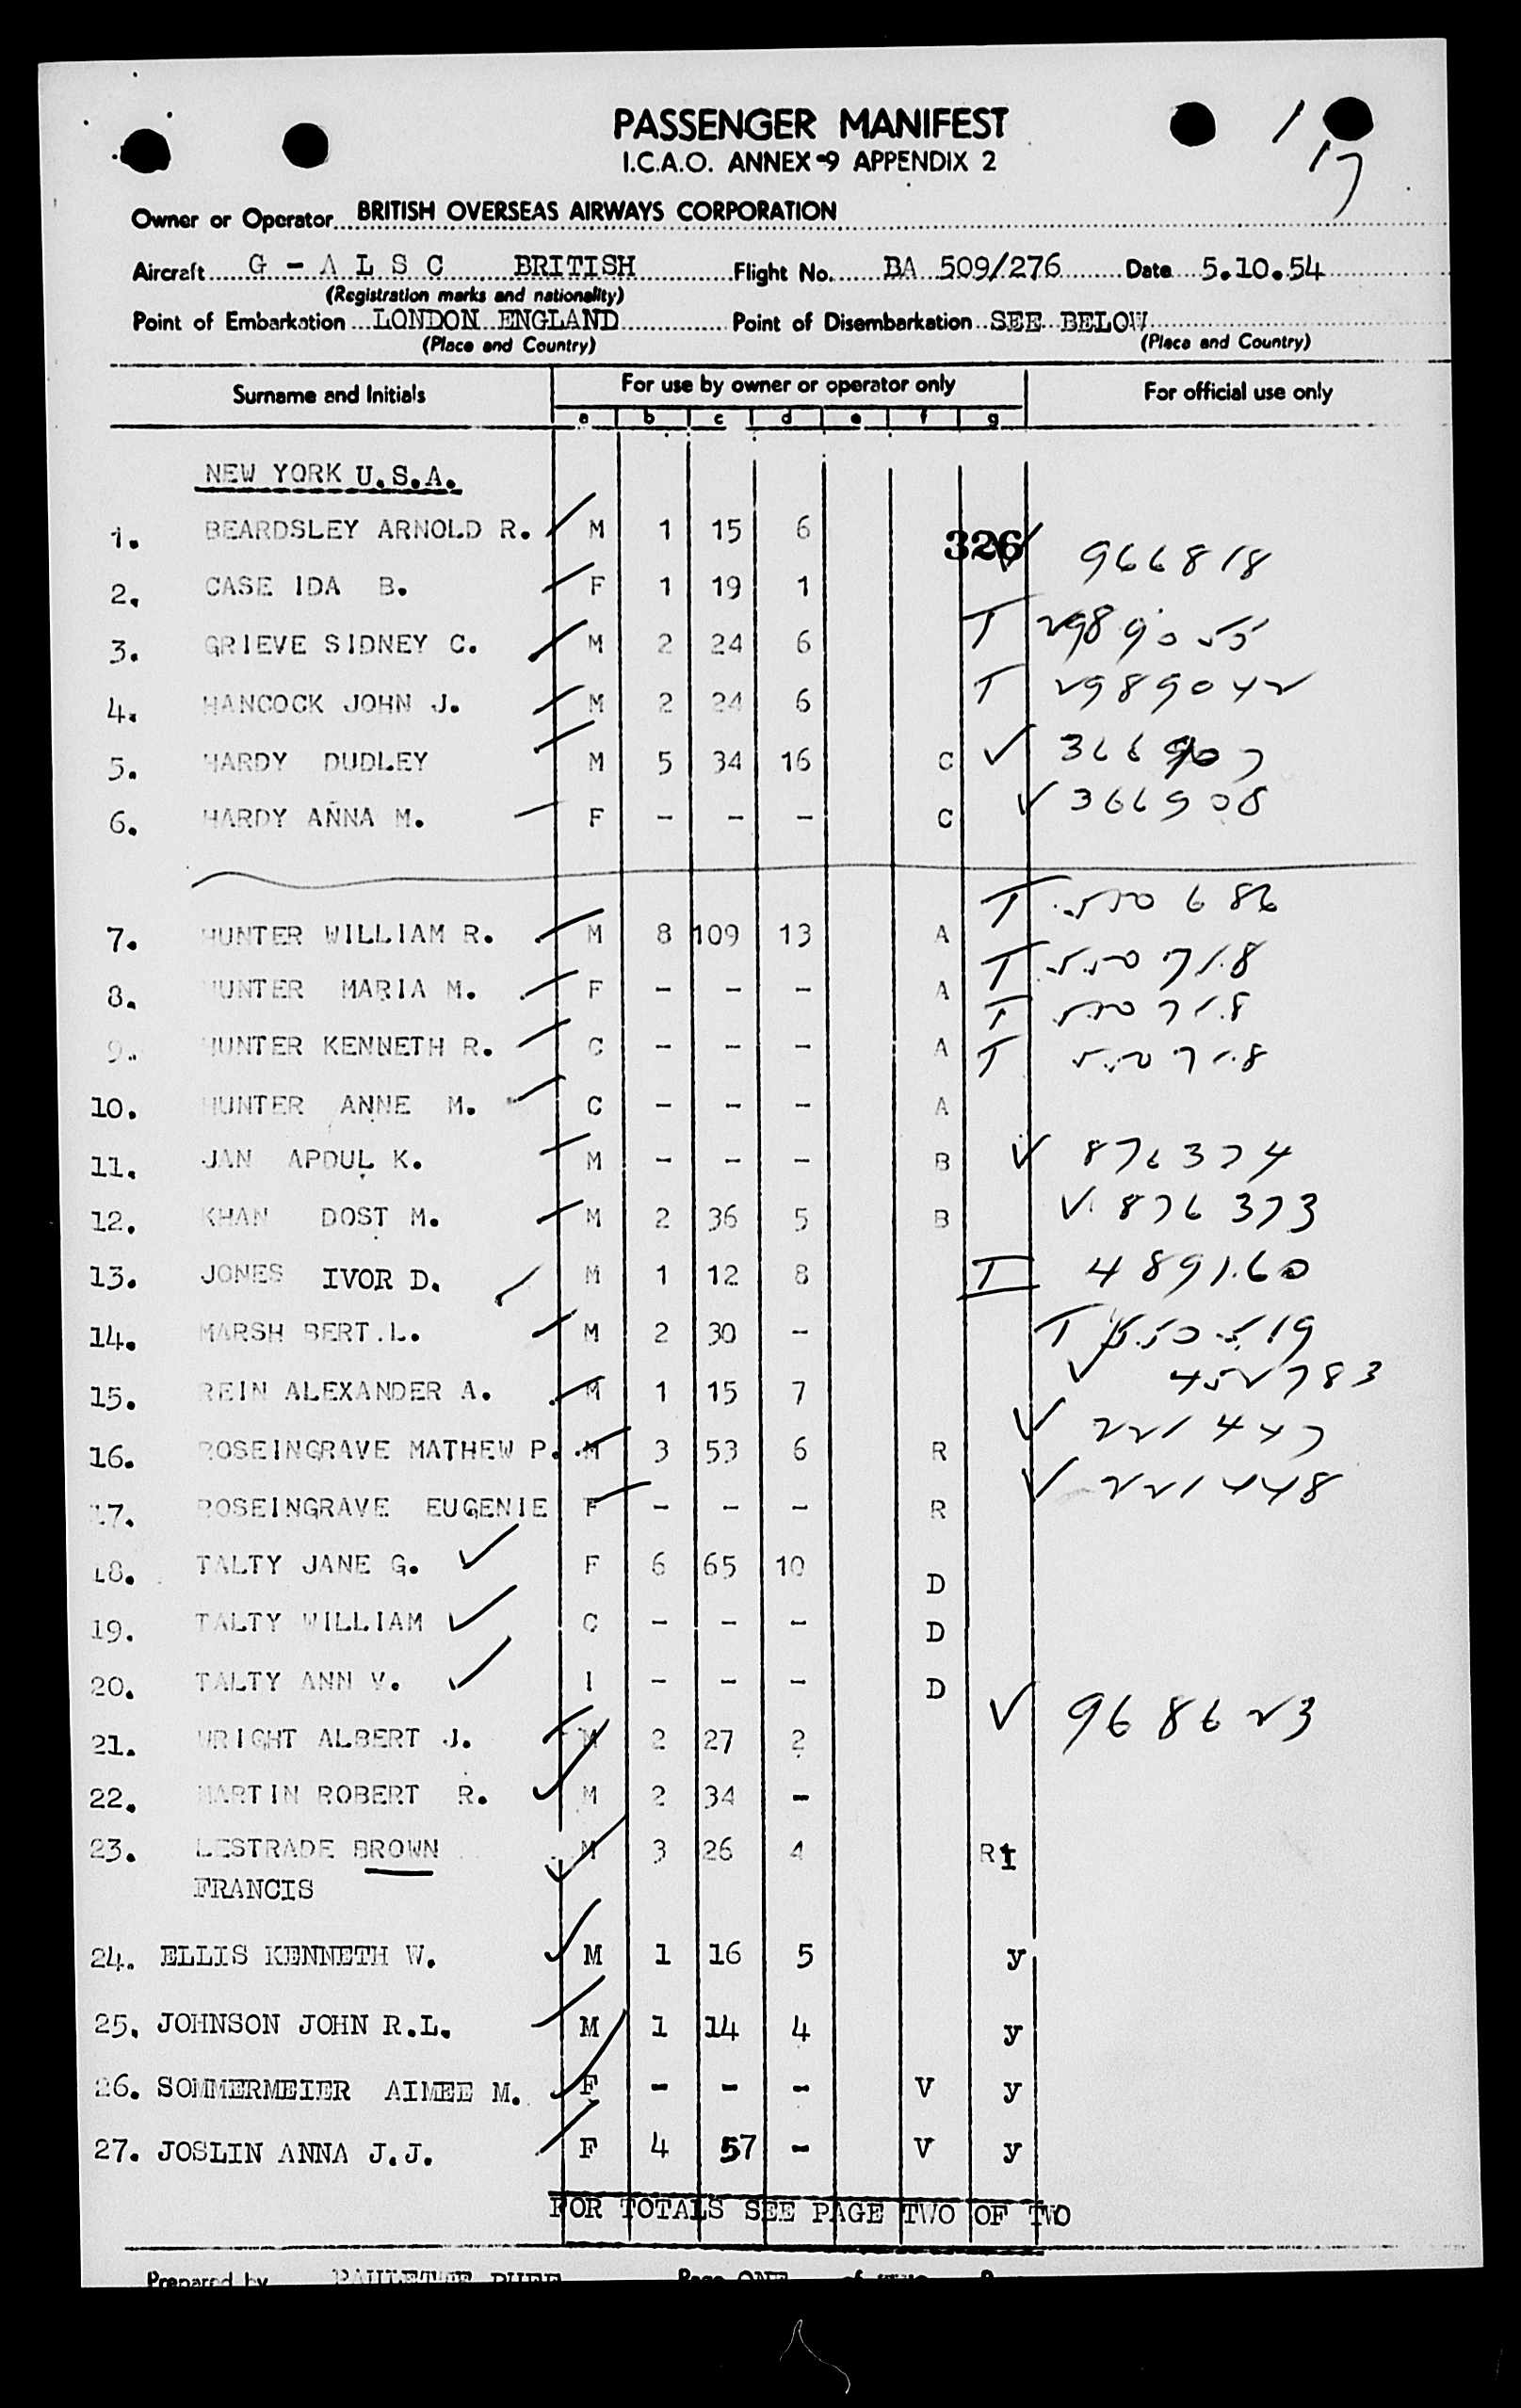 PASSENGER MANIFEST
I.C.A.O. ANNEX-9 APPENDIX 2
1
17
Owner or Operator BRITISH OVERSEAS AIRWAYS CORPORATION
Aircraft G - A L S C BRITISH Flight No. BA 509/276 Date 5.10.54
(Registration marks and nationality)
Point of Embarkation LONDON ENGLAND Point of Disembarkation SEE BELOW
(Place and Country) (Place and Country)
Surname and Initials For use by owner or operator only For official use only
a b c d e f g
NEW YORK U.S.A.
1. BEARDSLEY ARNOLD R. M 1 15 6 326 966818
2. CASE IDA B. F 1 19 1
3. GRIEVE SIDNEY C. M 2 24 6 T 2989055
4. HANCOCK JOHN J. M 2 24 6 T 2989042
5. HARDY DUDLEY M 5 34 16 C ✓ 366907
6. HARDY ANNA M. F - - - C ✓ 366908
7. HUNTER WILLIAM R. M 8 109 13 A T 550686
8. HUNTER MARIA M. F - - - A T 550718
9. HUNTER KENNETH R. C - - - A T 550718
10. HUNTER ANNE M. C - - - A T 550718
11. JAN APDUL K. M - - - B ✓ 876374
12. KHAN DOST M. M 2 36 5 B ✓ 876373
13. JONES IVOR D. M 1 12 8 T 489160
14. MARSH BERT.L. M 2 30 - T 550519
15. REIN ALEXANDER A. M 1 15 7 ✓ 452783
16. ROSEINGRAVE MATHEW P. M 3 53 6 R ✓ 221447
17. ROSEINGRAVE EUGENIE F - - - R ✓ 221448
18. TALTY JANE G. ✓ F 6 65 10 D
19. TALTY WILLIAM ✓ C - - - D
20. TALTY ANN V. ✓ I - - - D
21. WRIGHT ALBERT J. M 2 27 2 ✓ 968623
22. MARTIN ROBERT R. M 2 34 -
23. LESTRADE BROWN M 3 26 4
FRANCIS
24. ELLIS KENNETH W. M 1 16 5 y
25. JOHNSON JOHN R.L. M 1 14 4 y
26. SOMMERMEIER AIMEE M. F - - - V y
27. JOSLIN ANNA J.J. F 4 57 - V y
FOR TOTALS SEE PAGE TWO OF TWO
Prepared by Page ONE of